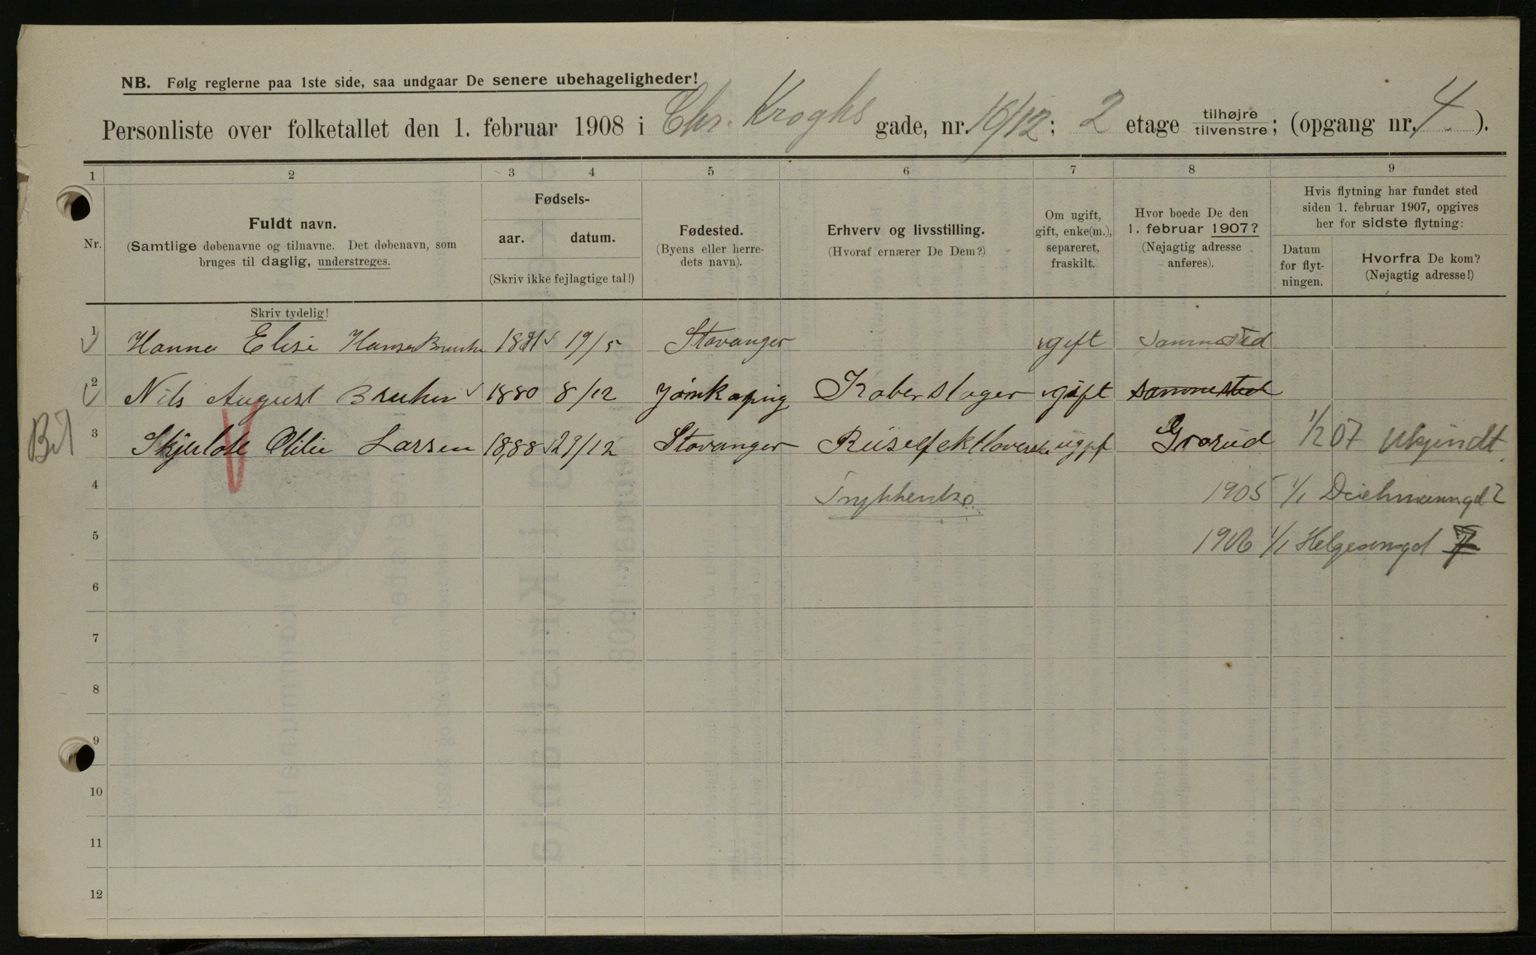 NB. Følg reglerne paa 1ste side, saa undgaar De senere ubehageligheder!
Personliste over folketallet den 1. februar 1908 i Chr. Kroghs gade, nr. 16/12; 2 etage tilhøjre tilvenstre; (opgang nr. 4).
1 2 3 4 5 6 7 8 9
Nr.
Fuldt navn.
(Samtlige døbenavne og tilnavne. Det døbenavn, som
bruges til daglig, understreges.
Fødsels-
aar. datum.
(Skriv ikke fejlagtige tal!)
Fødested.
(Byens eller herre-
dets navn).
Erhverv og livsstilling.
(Hvoraf ernærer De Dem?)
Om ugift,
gift, enke(m.),
separeret,
fraskilt.
Hvor boede De den
1. februar 1907?
(Nøjagtig adresse
anføres).
Hvis flytning har fundet sted
siden 1. februar 1907, opgives
her for sidste flytning:
Datum
for flyt-
ningen.
Hvorfra De kom?
(Nøjagtig adresse!)
Skriv tydelig!
1 Hanna Elise 19/5 Stavanger gift
2 Nils August Bruhn 1880 8/12 Jönkoping Koberslager gift sammested
Bil
3 Olilie Larsen 1888 29/12 Stavanger Grorud 1/2 07 Ukjendt
4 1905 1/1
5 1906 1/1 Helgesensgd 7
6
7
8
9
10
11
12